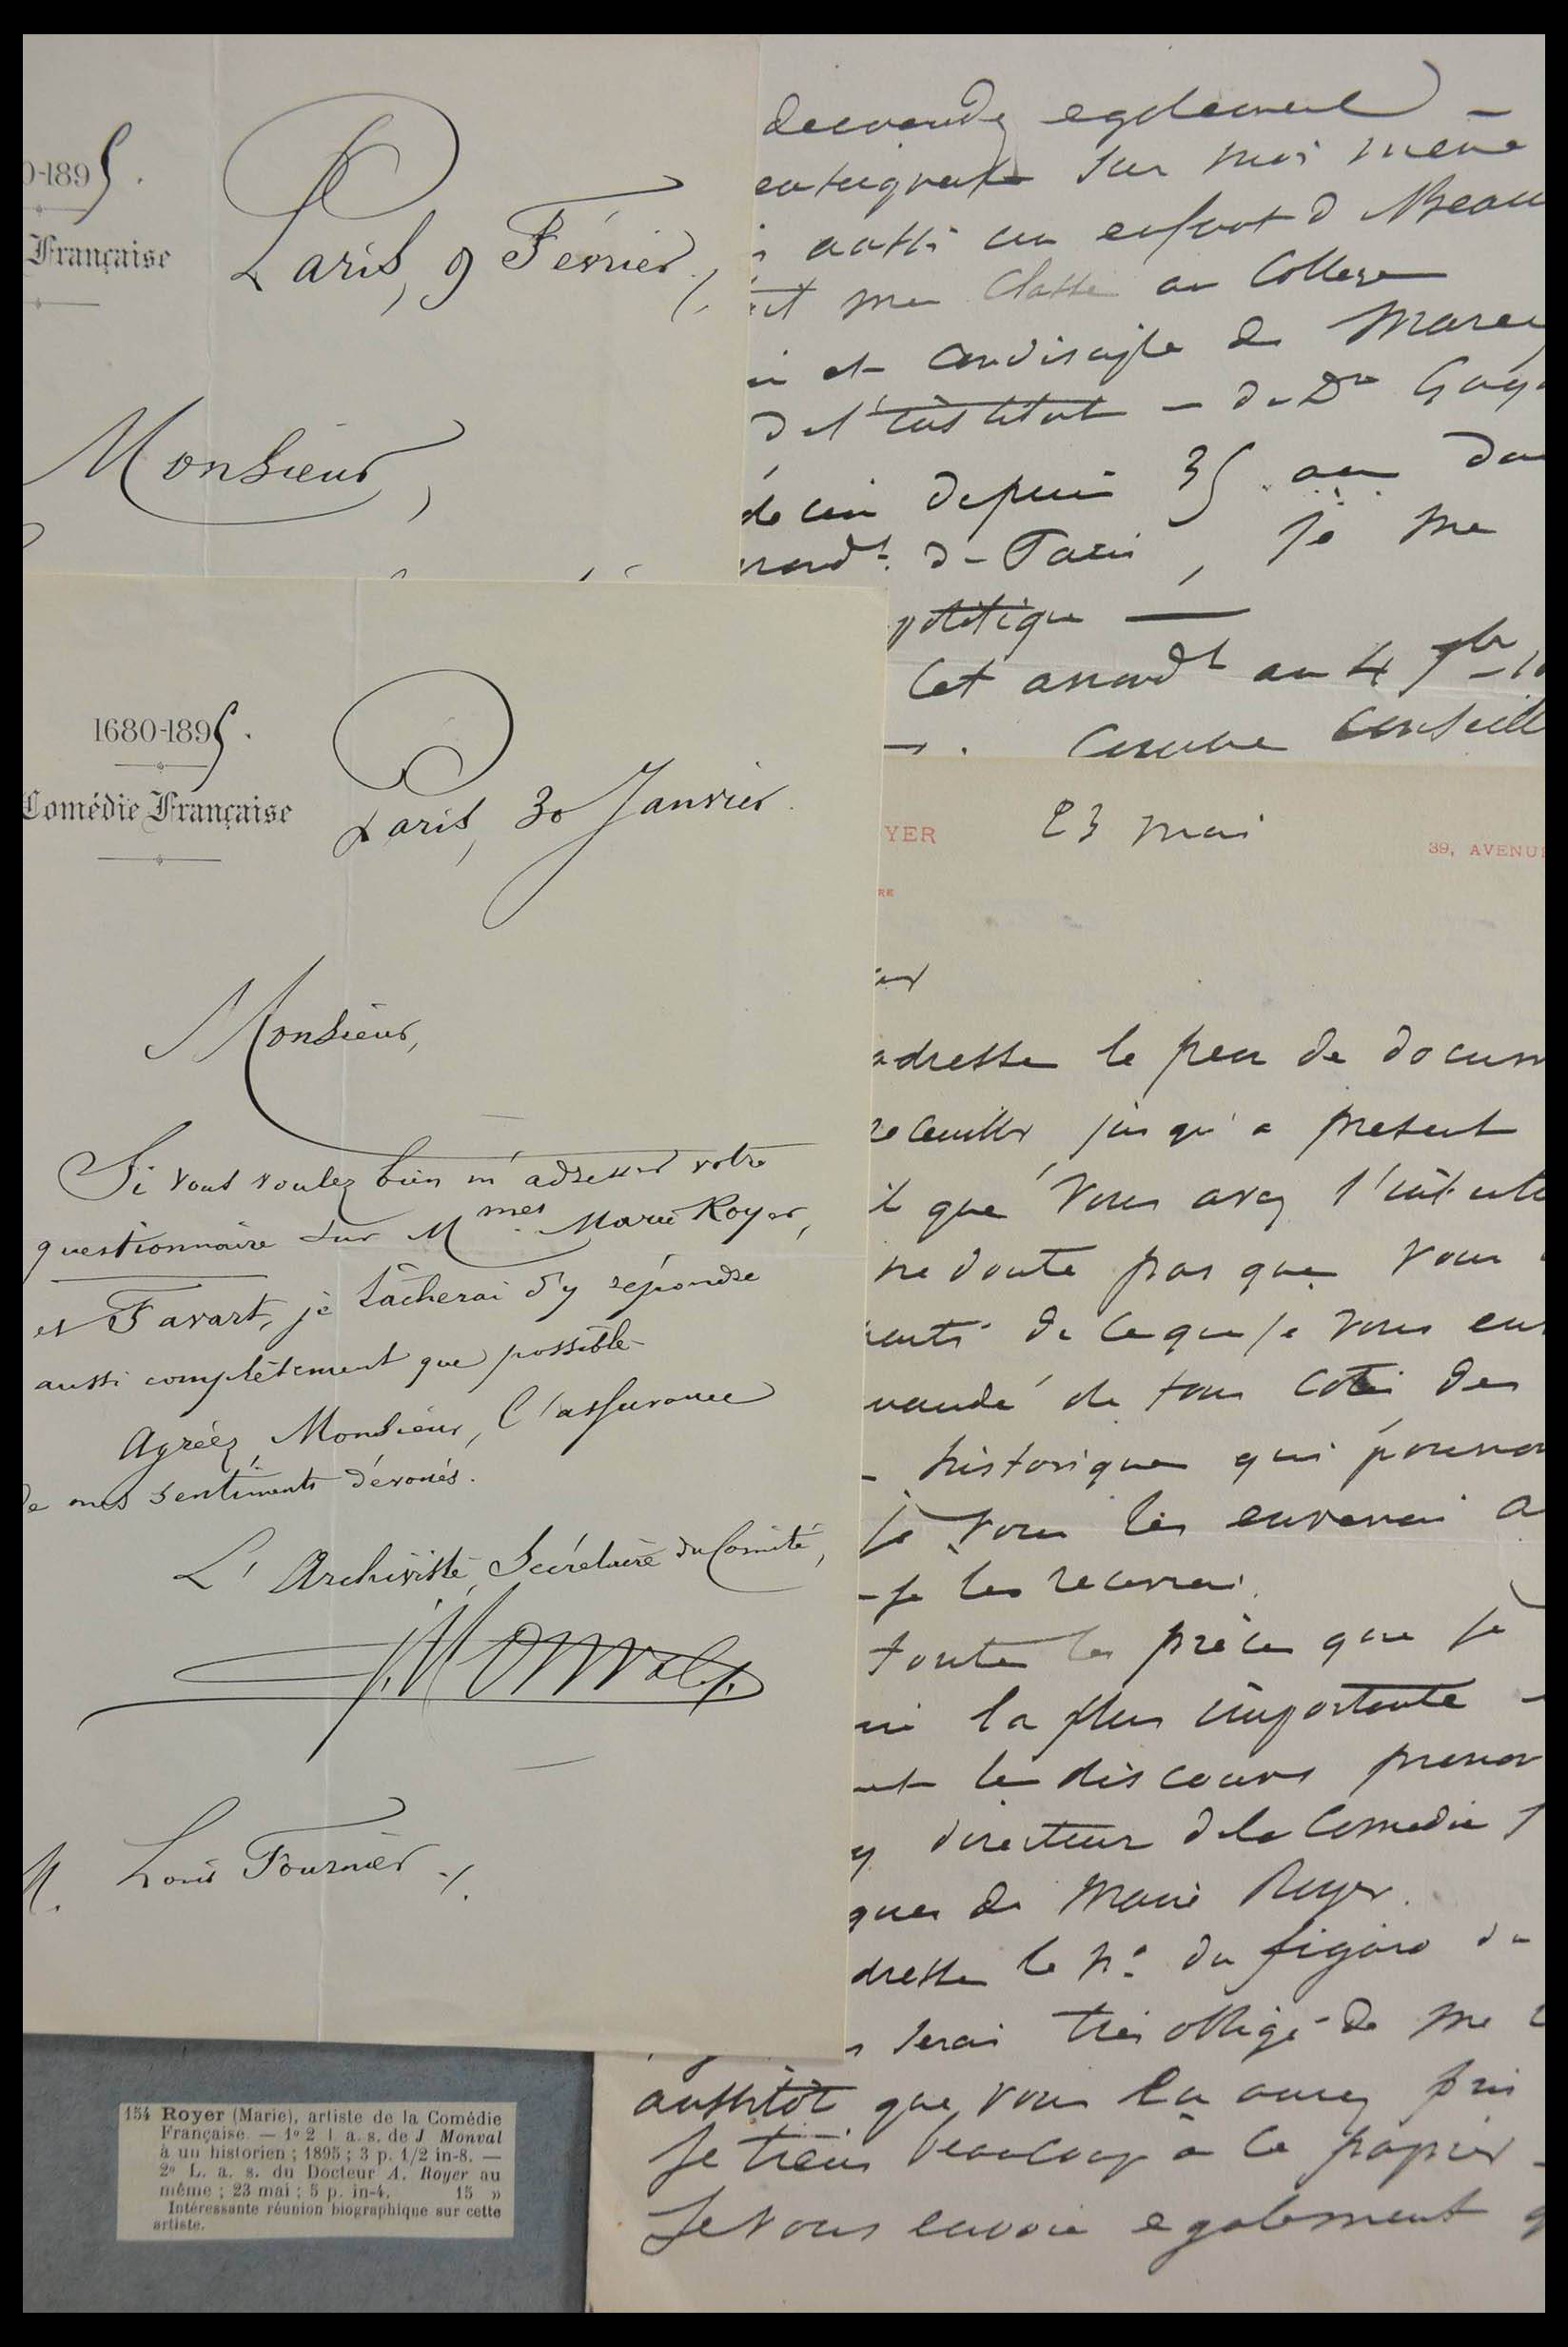 0-1895.
Française
Paris, 9 Février
Monsieur,
1680-1895.
Comédie Française
Paris, 30 Janvier.
Monsieur,
Si vous voulez bien m'adresser votre
questionnaire sur Mmes Marie Royer,
et Favart, je tâcherai d'y répondre
aussi complètement que possible.
Agréez, Monsieur, l'assurance
de mes sentiments dévoués.
L'Archiviste Secrétaire du Comité,
J. Monval
M. Louis Fournier
154 Royer (Marie), artiste de la Comédie
Française. — 1º 2 l. a. s. de J Monval
à un historien ; 1895 ; 3 p. 1/2 in-8. —
2º L. a. s. du Docteur A. Royer au
même ; 23 mai ; 5 p. in-4. 15 »
Intéressante réunion biographique sur cette
artiste.
demandez egalement —
sur moi meme
aussi un enfant d Beau
ma classe au College
et condisciple de Marey
de l'institut — du Dr
depuis 35 ans da
arrondt. de Paris, je me
politique —
Cet arrondt au 4 7bre
comme conseill
YER
23 mai
39, AVENUE
RE
adresse le peu de docum
recueillir jusqu'a present
que vous avez
ne doute pas que vous
de ce que je vous en
de tous coté des
historique qui pourron
je vous les enverrai a
je les recevrai.
toute les pièce que je
la plus importante
le discours pronon
directeur de la Comedie
ques de Marie Royer.
dresse le nº du figaro du
serai très obligé de me
aussitôt que vous en aurez pris
Je tiens beaucoup à ce papier —
Je vous envoie egalement